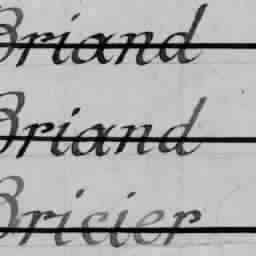 Briand
Briand
Bricier